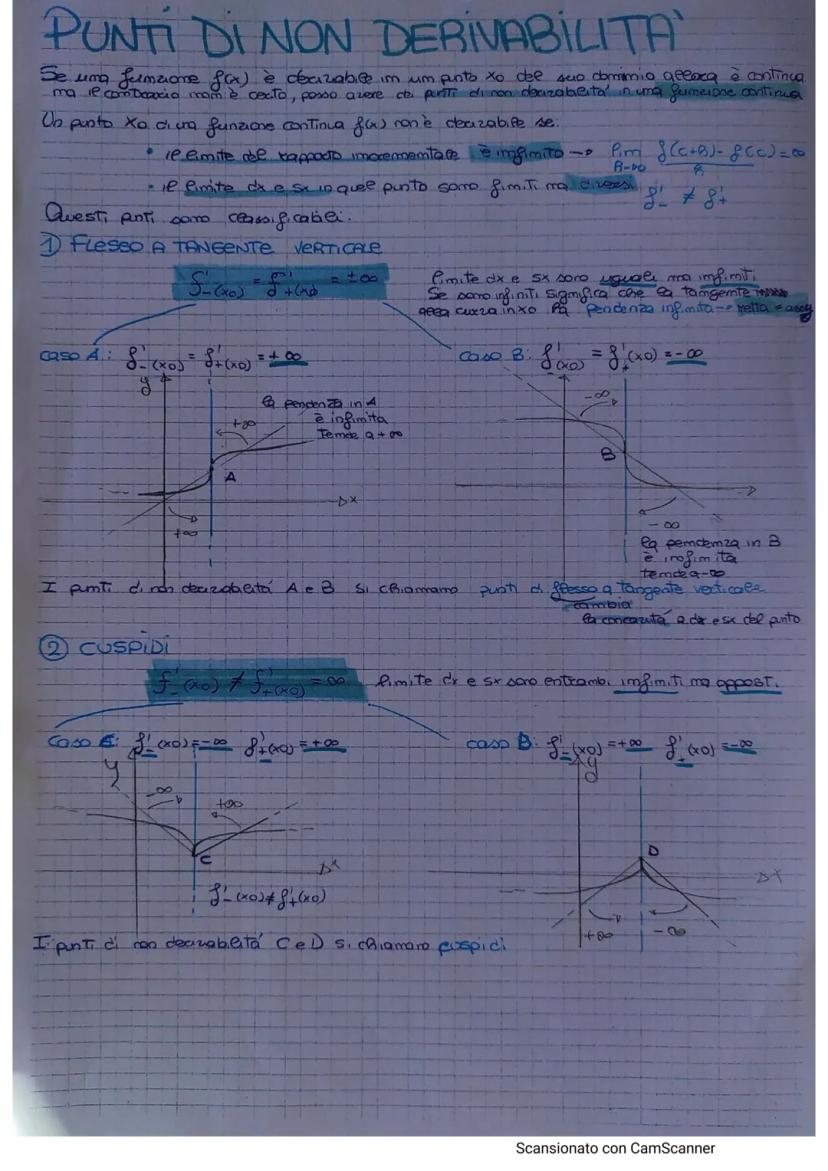 PUNTI DI NON DERIVABILITA'
Se una funzione f(x) è derivabile in un punto x0 del suo dominio allora è continua
ma il contrario non è certo, posso avere dei punti di non derivabilità in una funzione continua
Un punto x0 di una funzione continua f(x) non è derivabile se:
• il limite del rapporto incrementale è infinito → lim h→0 f(c+h)-f(c)/h = ∞
• il limite dx e sx in quel punto sono finiti ma diversi f'- ≠ f'+
Questi punti sono classificabili.
1) FLESSO A TANGENTE VERTICALE
f'-(x0) = f'+(x0) = ±∞
limite dx e sx sono uguali ma infiniti.
Se sono infiniti significa che la tangente
alla curva in x0 ha pendenza infinita → retta = assey
caso A: f'-(x0) = f'+(x0) = +∞
caso B: f'-(x0) = f'+(x0) = -∞
y
la pendenza in A
è infinita
tende a +∞
+∞
A
x
+∞
-∞
B
-∞
la pendenza in B
è infinita
tende a -∞
I punti di non derivabilità A e B si chiamano punti di flesso a tangente verticale
cambia
la concavità a dx e sx del punto
2 CUSPIDI
f'-(x0) ≠ f'+(x0) = ∞ limite dx e sx sono entrambi infiniti ma opposti.
caso C: f'-(x0) = -∞ f'+(x0) = +∞
caso B: f'-(x0) = +∞ f'+(x0) = -∞
y
-∞
+∞
C
x
f'-(x0) ≠ f'+(x0)
y
D
x
+∞
-∞
I punti di non derivabilità C e D si chiamano cuspidi
Scansionato con CamScanner